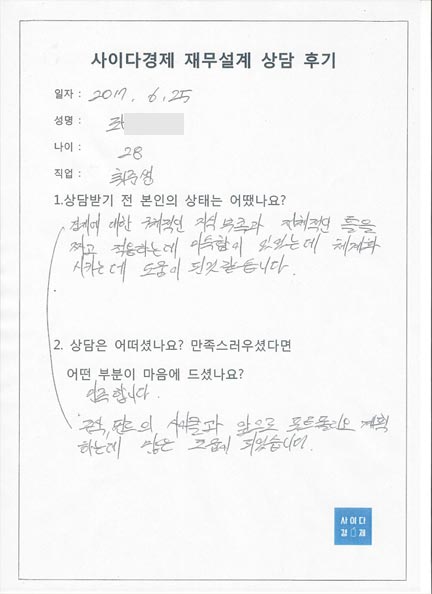 사이다경제 재무설계 상담 후기
일자 : 2017. 6. 25
성명 :
나이 : 28
직업 : 취준생
1.상담받기 전 본인의 상태는 어땠나요?
경제에 대한 구체적인 지식 부족과 전체적인 틀을
짜고 적용하는데 미흡함이 있었는데 체계화
시키는데 도움이 된것 같습니다.
2. 상담은 어떠셨나요? 만족스러우셨다면
어떤 부분이 마음에 드셨나요?
만족합니다.
펀드의 사이클과 앞으로 포트폴리오 계획
하는데 많은 도움이 되었습니다.
사이다
경제